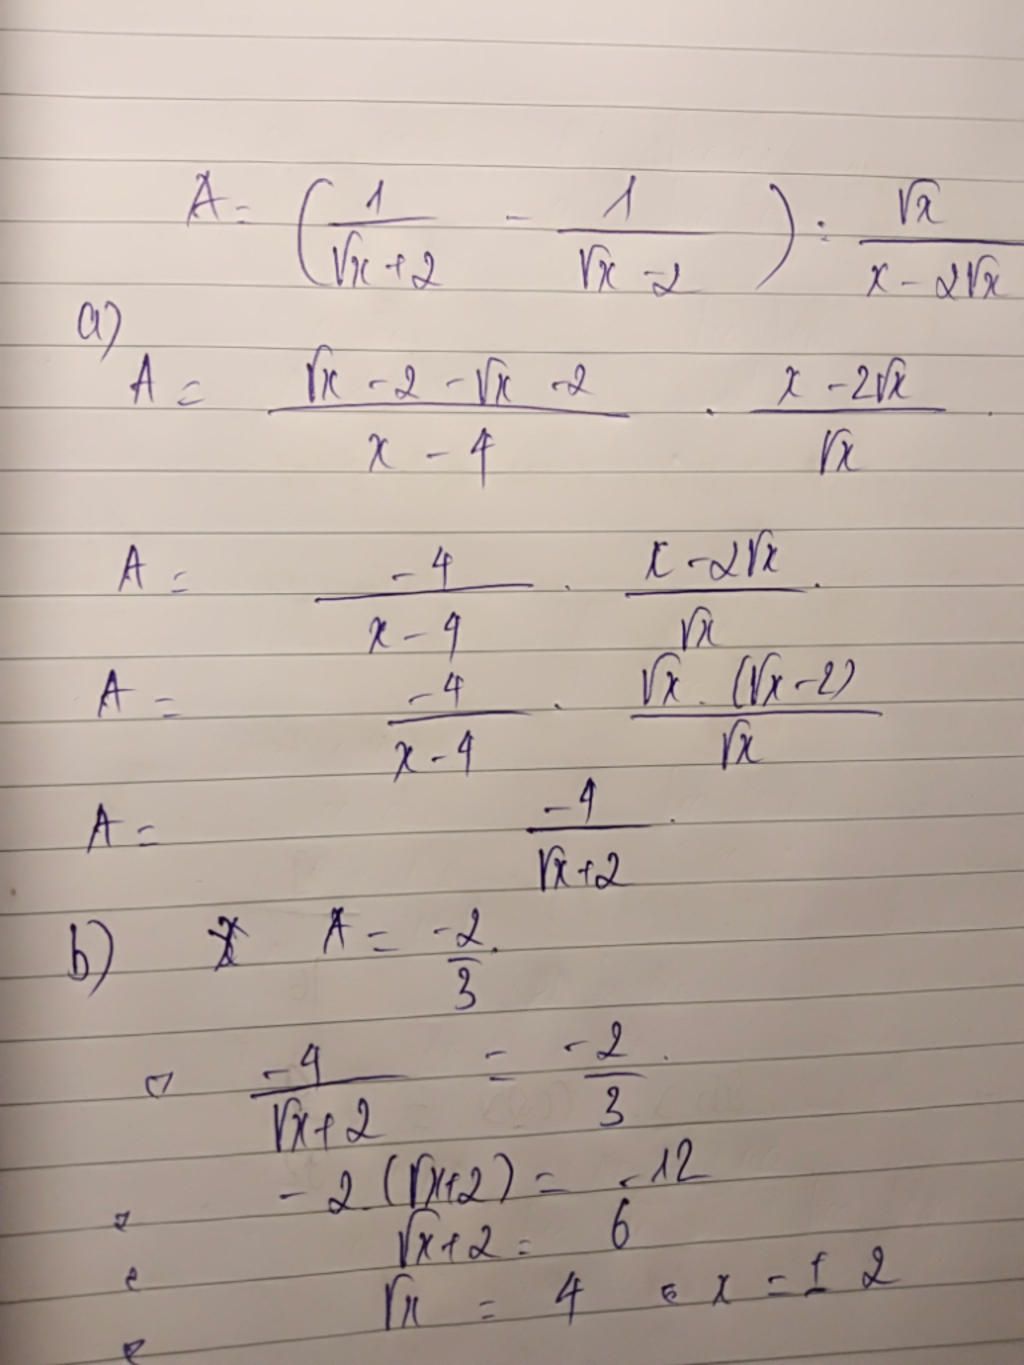 A = (1/(√x + 2) - 1/(√x - 2)) : √x/(x - 2√x)
a)
A = (√x - 2 - √x - 2)/(x - 4) . (x - 2√x)/√x .
A = -4/(x - 4) . (x - 2√x)/√x .
A = -4/(x - 4) . √x . (√x - 2)/√x
A = -4/(√x + 2) .
b) A = -2/3 .
-4/(√x + 2) = -2/3 .
-2 . (√x + 2) = -12
√x + 2 = 6
√x = 4 x = ± 2